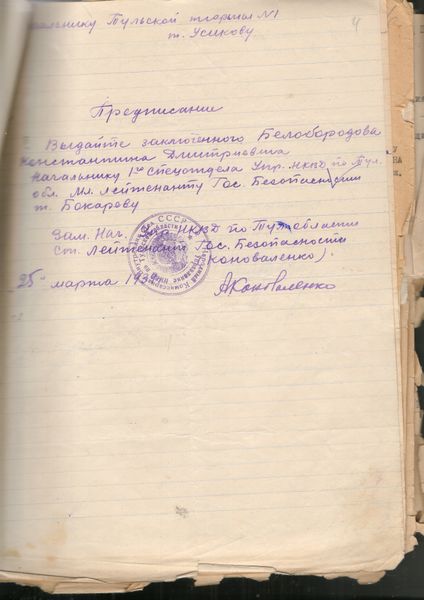 Начальнику Тульской тюрьмы №1
т. Усикову
4
Предписание
Выдайте заключенного Белобородова
Константина Дмитриевича
Начальнику 1го спецотдела Упр. НКВД по Тул.
обл. Мл. Лейтенанту Гос. Безопасности
т. Бокареву
Зам. Нач. НКВД по Тул. области
Ст. Лейтенант Гос. Безопасности
Коноваленко)
"25" марта 193
АКоноваленко
СССР